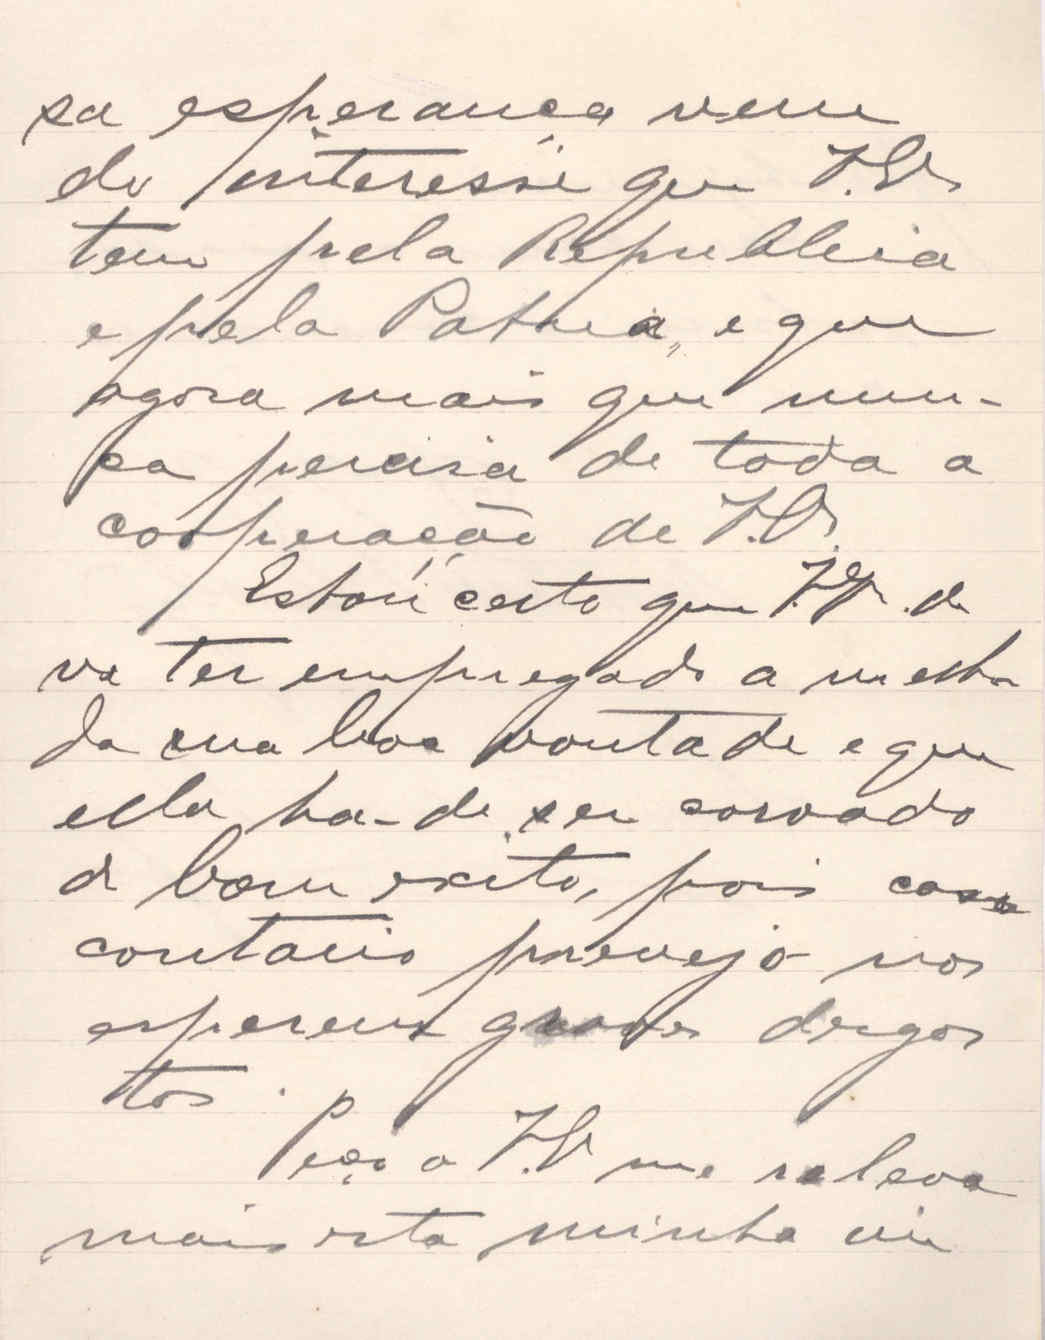 sa esperança vem
do interesse que V. Ex
tem pela Republica
e pela Patria, e que
agora mais que nun-
ca precisa de toda a
cooperação de V. Ex.
Estou certo que V. Ex. de
ve ter empregado a melho
da sua boa vontade e que
ella ha-de ser coroado
de bom exito, pois caso
contario prevejo nos
esperem graves desgos
tos.
Peço a V. Ex me releva
mais esta minha im